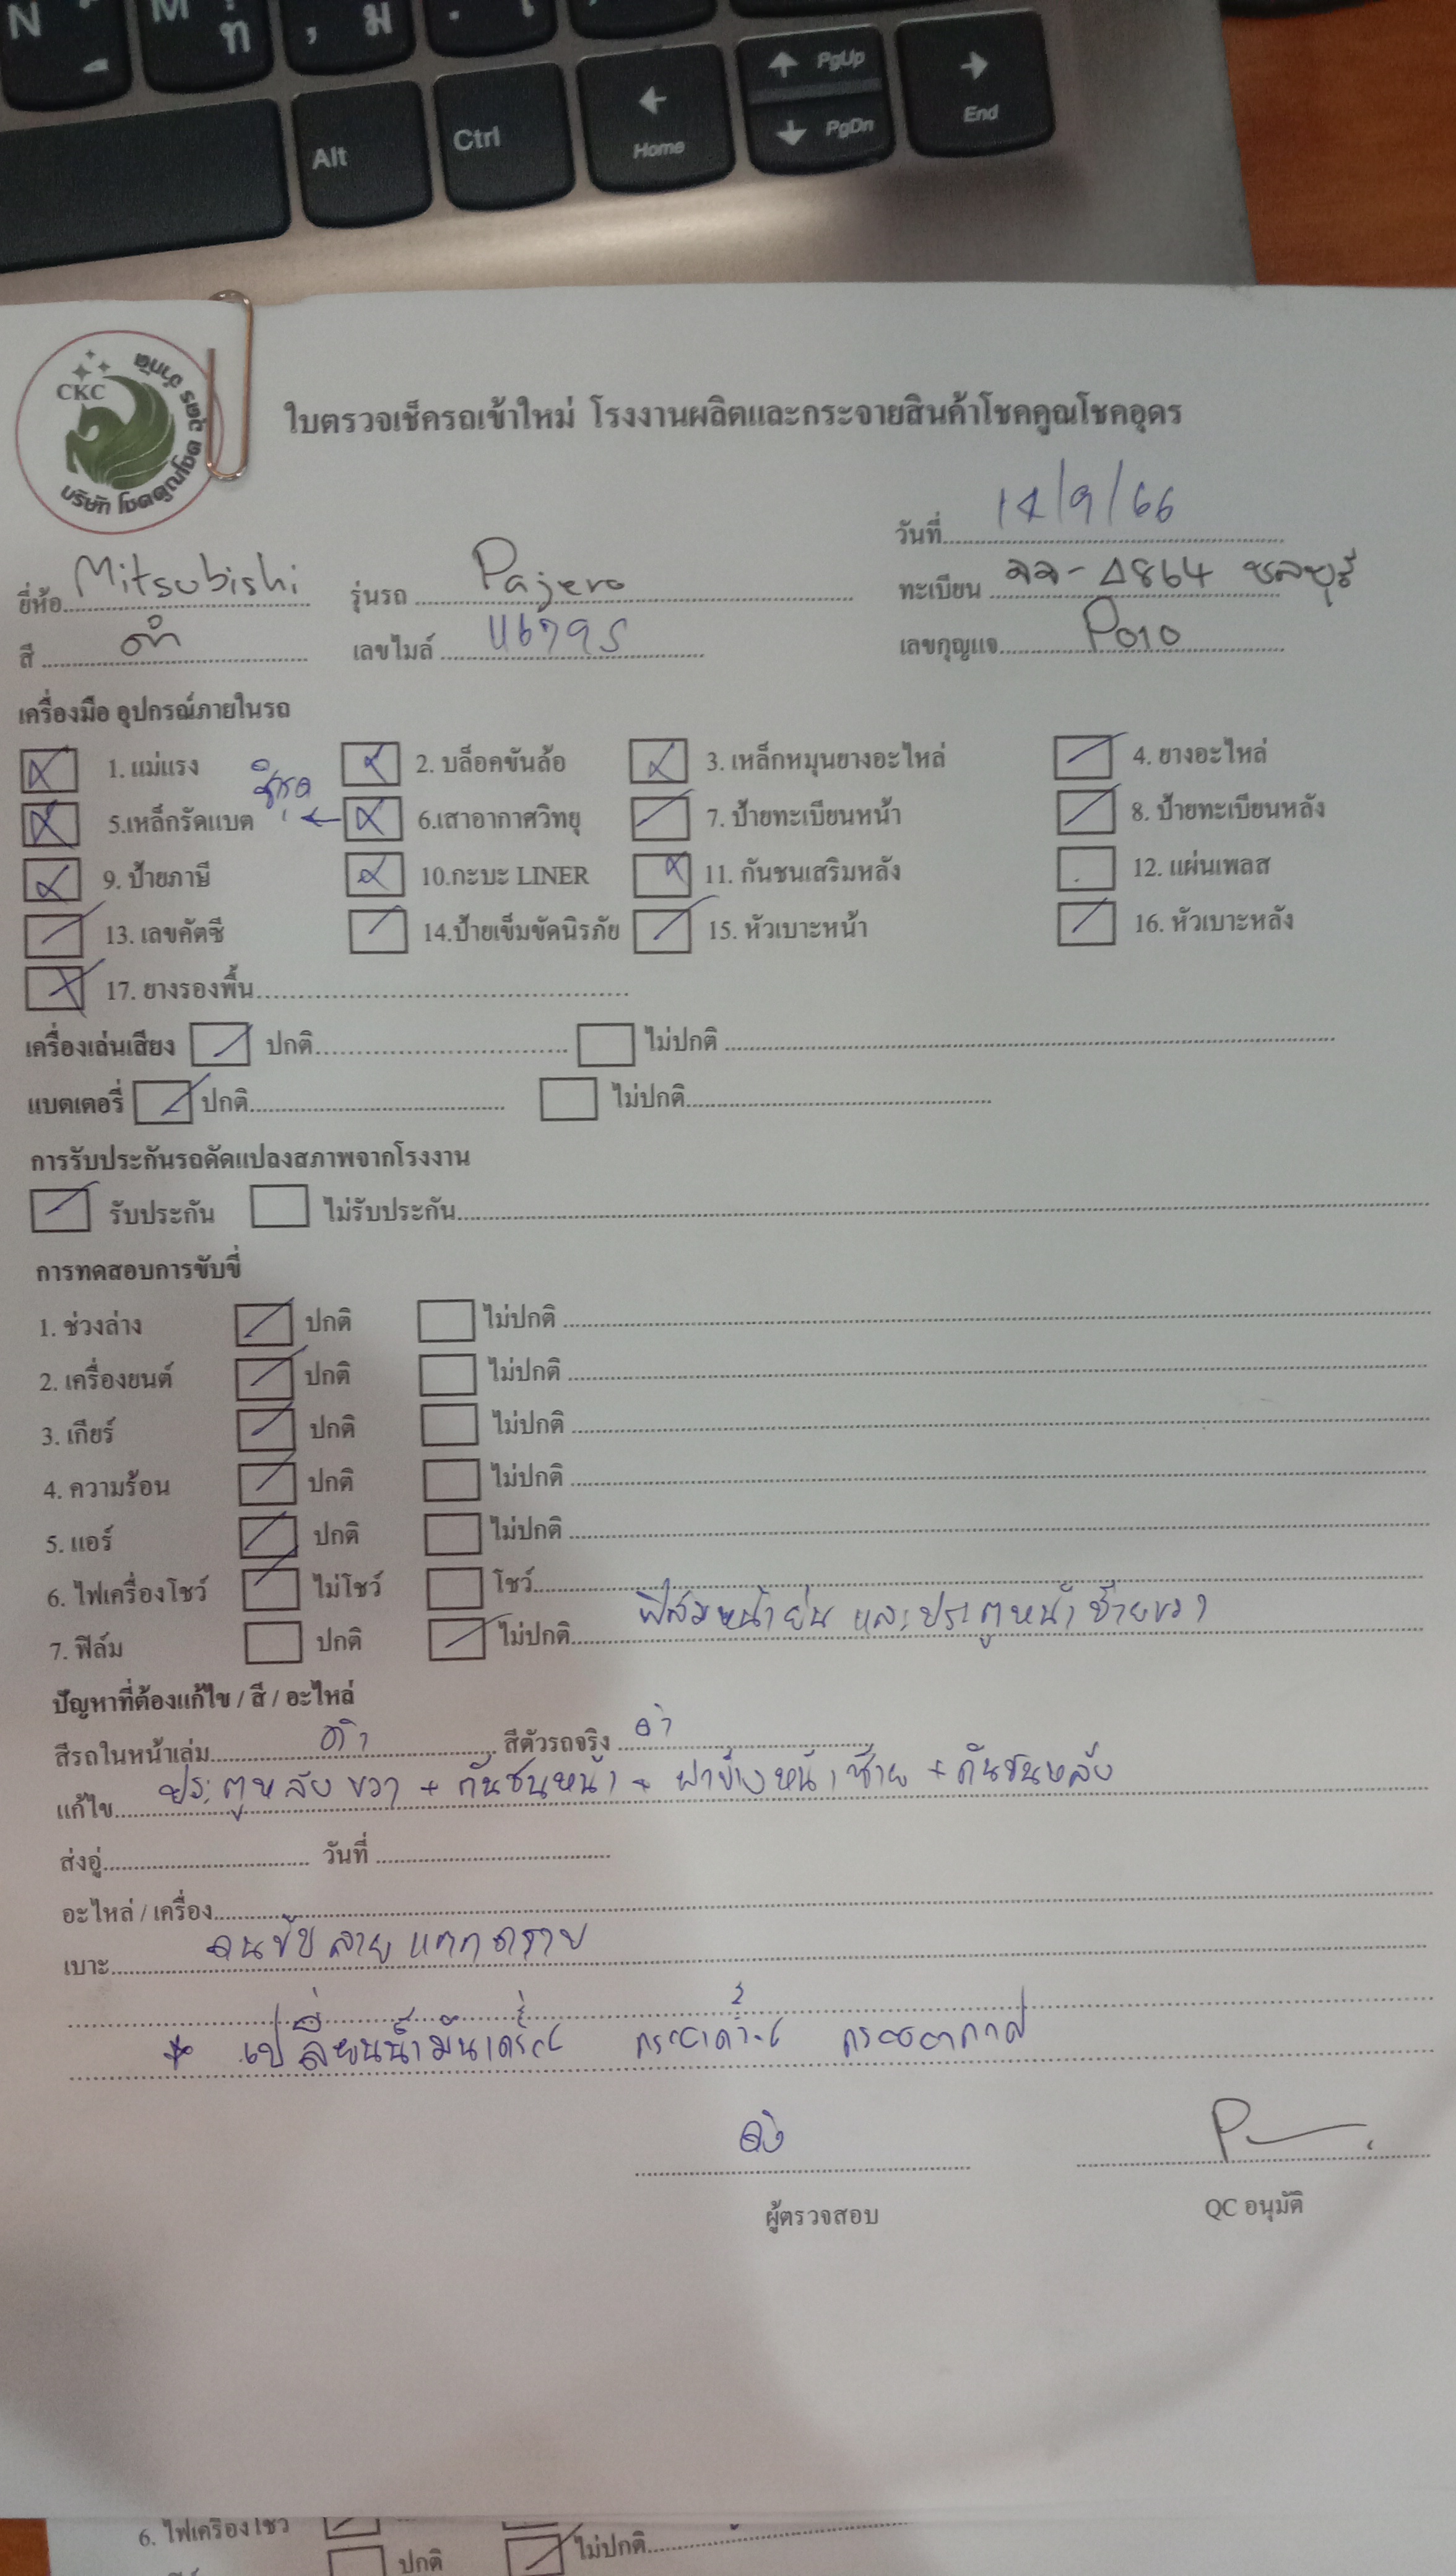 N M ท , ม
Alt Ctrl ← Home ↑ PgUp ↓ PgDn → End
CKC
บริษัท โชคคูณโชค
จำกัด
ใบตรวจเช็ครถเข้าใหม่ โรงงานผลิตและกระจายสินค้าโชคคูณโชคอุดร
วันที่ 14/9/66
ยี่ห้อ Mitsubishi รุ่นรถ Pajero ทะเบียน ชลบุรี
สี ดำ เลขไมล์ เลขกุญแจ P010
เครื่องมือ อุปกรณ์ภายในรถ
1. แม่แรง 2. บล็อคขันล้อ 3. เหล็กหมุนยางอะไหล่ 4. ยางอะไหล่
ชำรุด
5.เหล็กรัดแบต 6.เสาอากาศวิทยุ 7. ป้ายทะเบียนหน้า 8. ป้ายทะเบียนหลัง
9. ป้ายภาษี 10.กะบะ LINER 11. กันชนเสริมหลัง 12. แผ่นเพลส
13. เลขคัตซี 14.ป้ายเข็มขัดนิรภัย 15. หัวเบาะหน้า 16. หัวเบาะหลัง
17. ยางรองพื้น
เครื่องเล่นเสียง ปกติ ไม่ปกติ
แบตเตอรี่ ปกติ ไม่ปกติ
การรับประกันรถดัดแปลงสภาพจากโรงงาน
รับประกัน ไม่รับประกัน
การทดสอบการขับขี่
1. ช่วงล่าง ปกติ ไม่ปกติ
2. เครื่องยนต์ ปกติ ไม่ปกติ
3. เกียร์ ปกติ ไม่ปกติ
4. ความร้อน ปกติ ไม่ปกติ
5. แอร์ ปกติ ไม่ปกติ
6. ไฟเครื่องโชว์ ไม่โชว์ โชว์
7. ฟิล์ม ปกติ ไม่ปกติ ฟิล์มหน้าย่น และประตูหน้าซ้ายขวา
ปัญหาที่ต้องแก้ไข / สี / อะไหล่
สีรถในหน้าเล่ม ดำ สีตัวรถจริง ดำ
แก้ไข ประตูหลังขวา + กันชนหน้า + ฝาข้างหน้าซ้าย + กันชนหลัง
ส่งอู่ วันที่
อะไหล่ / เครื่อง
เบาะ คนขับลายแตก
* เปลี่ยนน้ำมันเครื่อง กรองเครื่อง กรองอากาศ
ผู้ตรวจสอบ QC อนุมัติ
6. ไฟเครื่องโชว์
ปกติ ไม่ปกติ